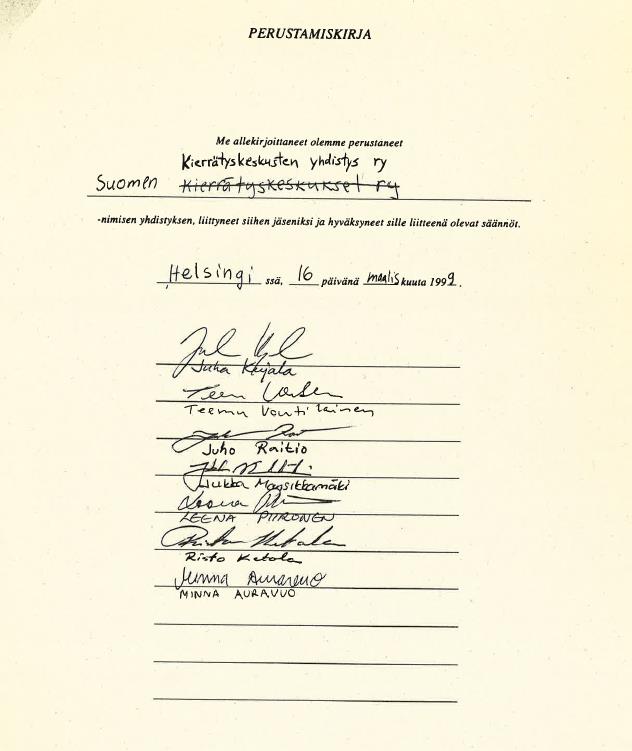 PERUSTAMISKIRJA
Me allekirjoittaneet olemme perustaneet
Kierrätyskeskusten yhdistys ry
Suomen Kierrätyskeskukset ry
-nimisen yhdistyksen, liittyneet siihen jäseniksi ja hyväksyneet sille liitteenä olevat säännöt.
Helsingi ssä, 16 päivänä maalis kuuta 1999.
Juha
Teemu Vontilainen
Juho Raitio
Jukka
LEENA PIIRONEN
Risto Ketola
Risto Ketola
Minna Auravuo
MINNA AURAVUO